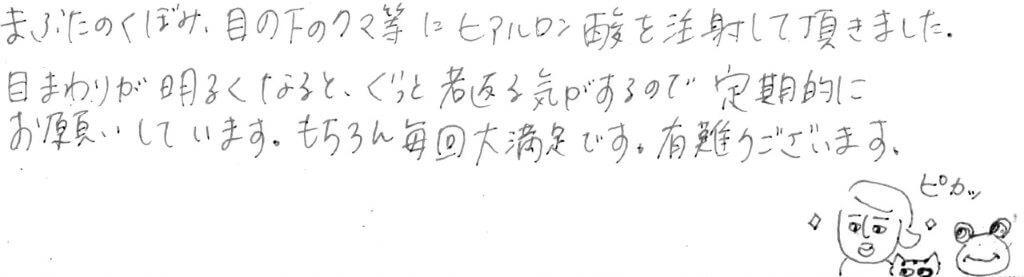 まぶたのくぼみ、目の下のクマ等にヒアルロン酸を注射して頂きました。
目まわりが明るくなると、ぐっと若返る気がするので定期的に
お願いしています。もちろん毎回大満足です。有難うございます。
ピカッ